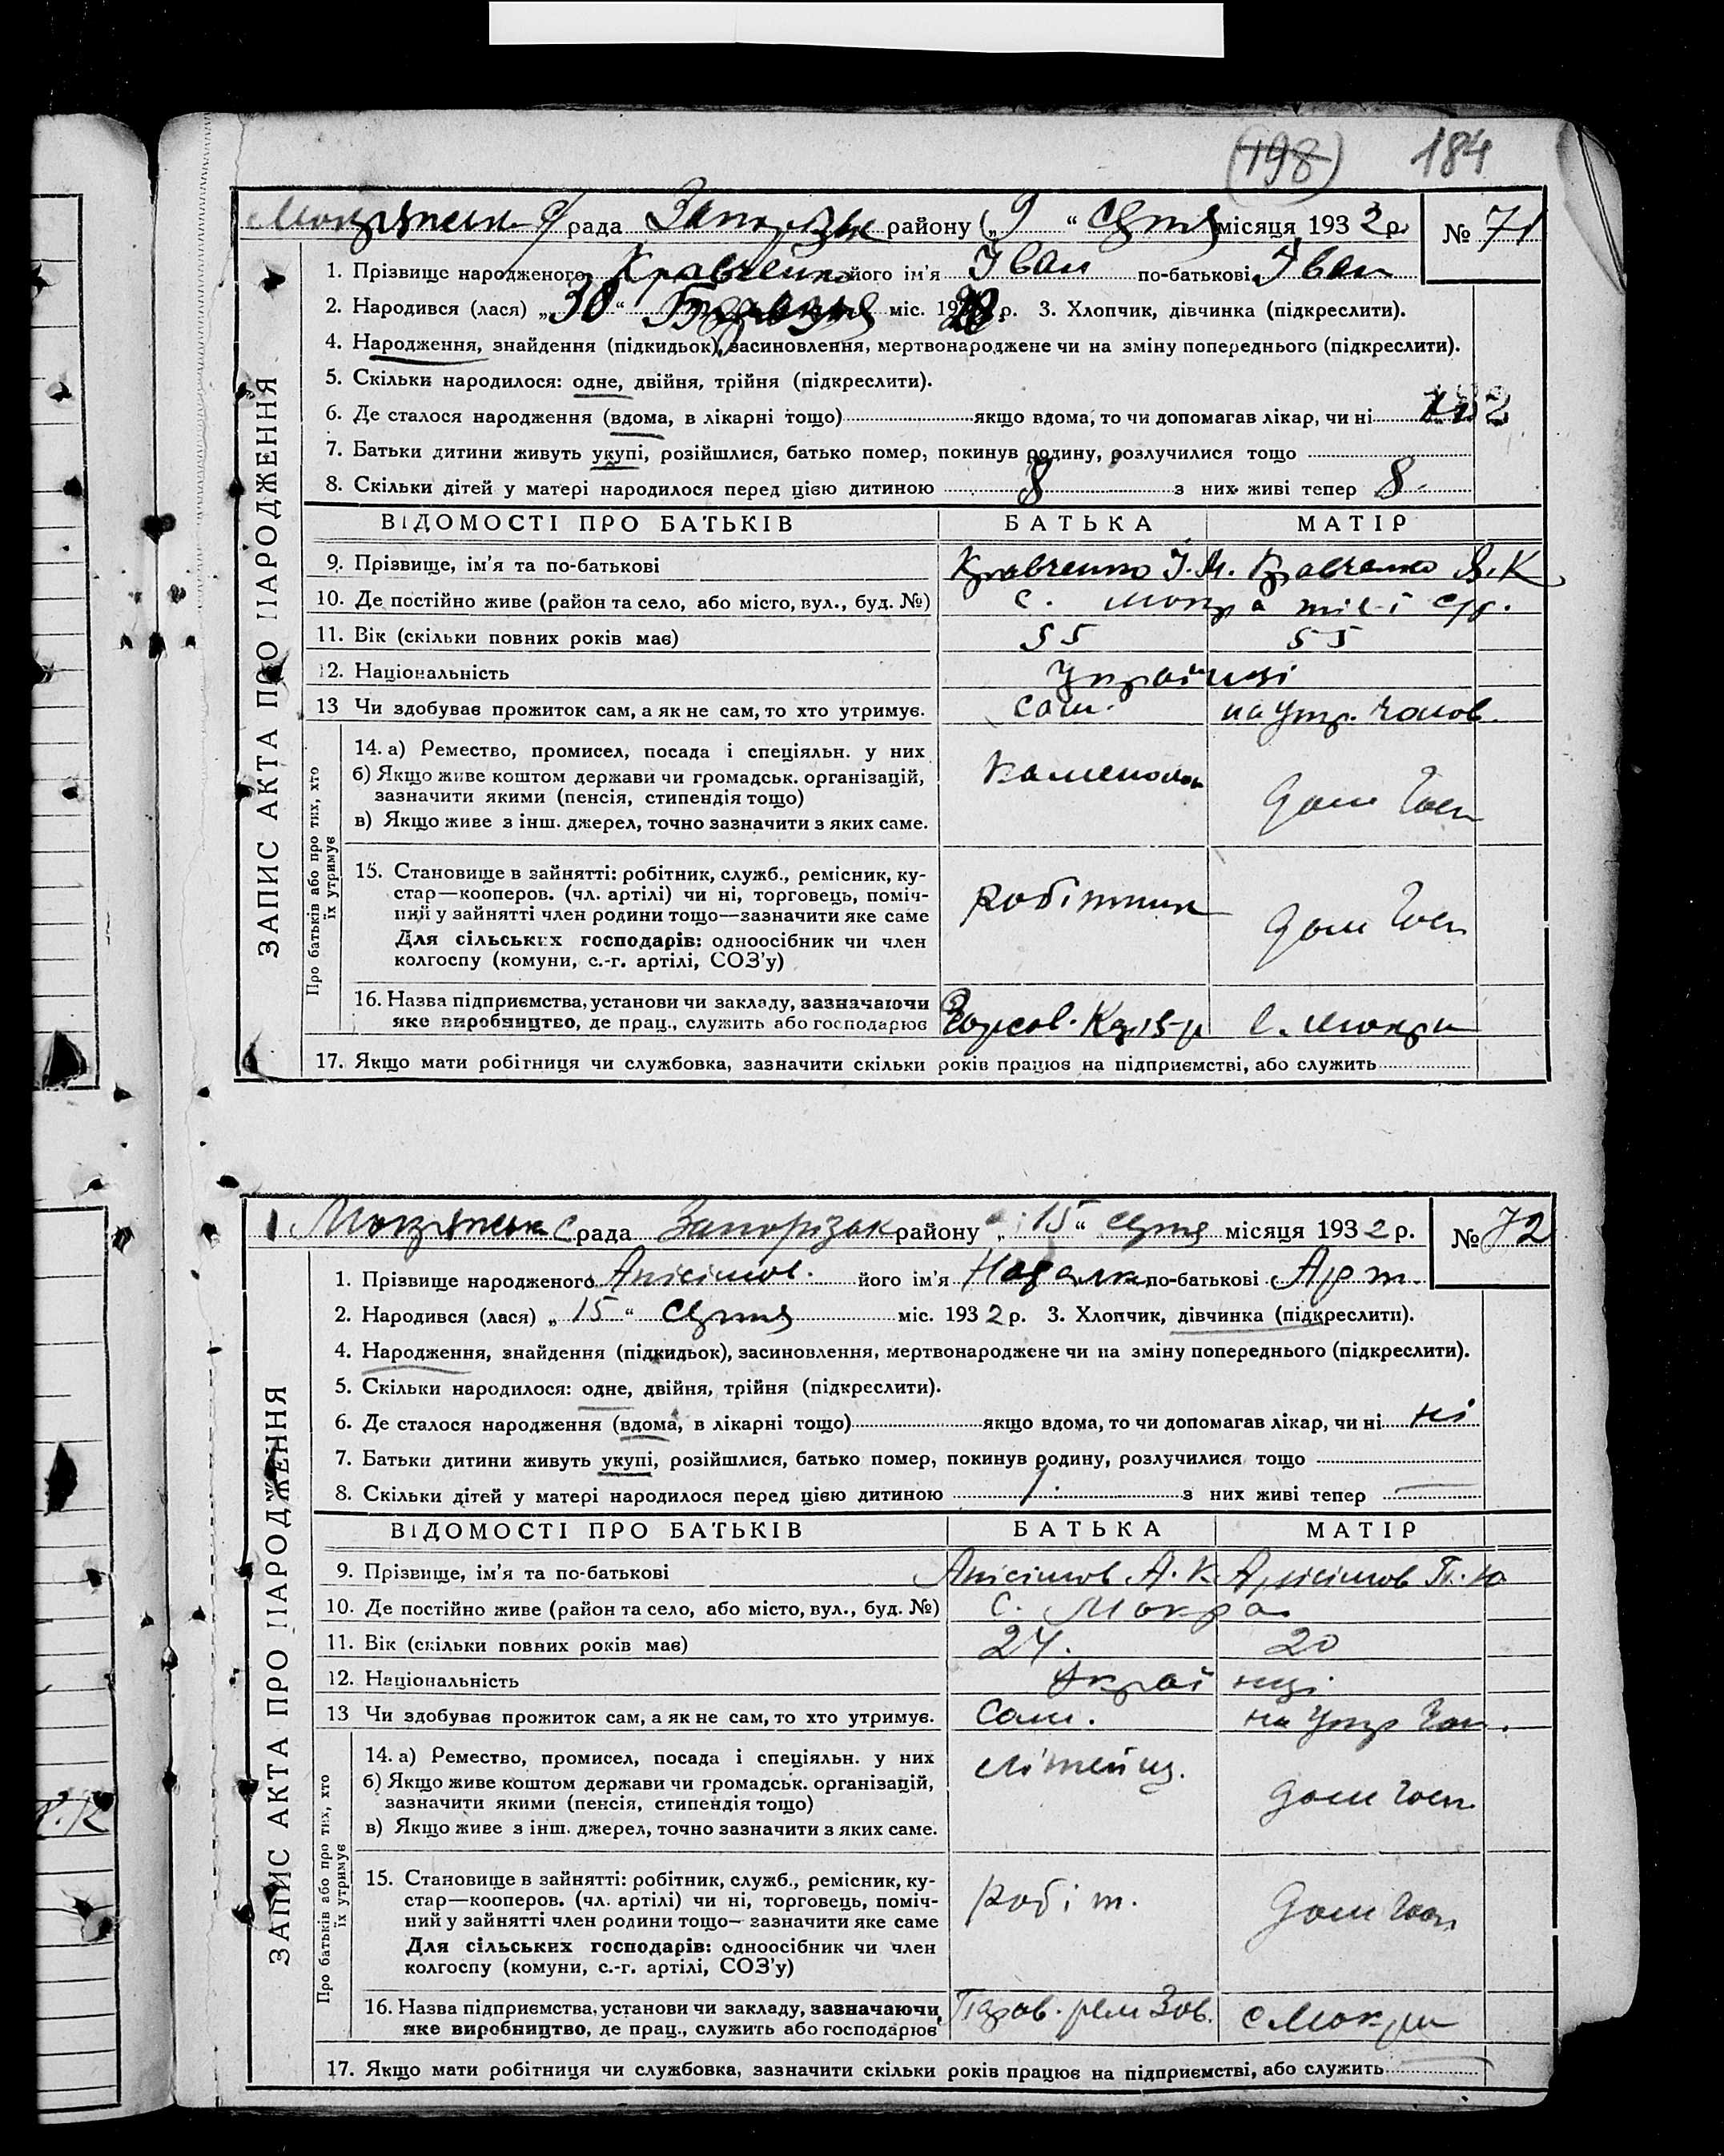 (198) 184
рада район у („ 9 “ Серпня місяця 1932 р. № 71
1. Прізвище народженого Кравченко його ім'я Іван по-батькові Іван
2. Народився (лася) „ 30 “ міс. 19 р. 3. Хлопчик, дівчинка (підкреслити).
4. Народження, знайдення (підкидьок), засиновлення, мертвонароджене чи на зміну попереднього (підкреслити).
5. Скільки народилося: одне, двійня, трійня (підкреслити).
6. Де сталося народження (вдома, в лікарні тощо) якщо вдома, то чи допомагав лікар, чи ні
7. Батьки дитини живуть укупі, розійшлися, батько помер, покинув родину, розлучилися тощо
8. Скільки дітей у матері народилося перед цією дитиною 8 з них живі тепер 8
ВІДОМОСТІ ПРО БАТЬКІВ БАТЬКА МАТІР
9. Прізвище, ім'я та по-батькові Кравченко І. М. Кравченко Я. К
10. Де постійно живе (район та село, або місто, вул., буд. №) с. Мокра
11. Вік (скільки повних років має) 55 55
12. Національність Українці
13 Чи здобуває прожиток сам, а як не сам, то хто утримує. сам. на утр. чолов.
14. а) Ремество, промисел, посада і спеціяльн. у них
б) Якщо живе коштом держави чи громадськ. організацій,
зазначити якими (пенсія, стипендія тощо)
в) Якщо живе з інш. джерел, точно зазначити з яких саме.
каменолом дом госп
15. Становище в зайнятті: робітник, служб., ремісник, ку-
стар—кооперов. (чл. артілі) чи ні, торговець, поміч-
ний у зайнятті член родини тощо—зазначити яке саме
Для сільських господарів: одноосібник чи член
колгоспу (комуни, с.-г. артілі, СОЗ'у)
робітник дом госп
16. Назва підприємства, установи чи закладу, зазначаючи
яке виробництво, де прац., служить або господарює
с. Мокра
17. Якщо мати робітниця чи службовка, зазначити скільки років працює на підприємстві, або служить
ЗАПИС АКТА ПРО НАРОДЖЕННЯ
Про батьків або про тих, хто
їх утримує
Мокрянськ С рада Запорізьк району „ 15 “ серпня місяця 1932 р. № 72
1. Прізвище народженого Анісімов. його ім'я по-батькові Арт.
2. Народився (лася) „ 15 “ серпня міс. 1932 р. 3. Хлопчик, дівчинка (підкреслити).
4. Народження, знайдення (підкидьок), засиновлення, мертвонароджене чи на зміну попереднього (підкреслити).
5. Скільки народилося: одне, двійня, трійня (підкреслити).
6. Де сталося народження (вдома, в лікарні тощо) якщо вдома, то чи допомагав лікар, чи ні ні
7. Батьки дитини живуть укупі, розійшлися, батько помер, покинув родину, розлучилися тощо
8. Скільки дітей у матері народилося перед цією дитиною 1. з них живі тепер —
ВІДОМОСТІ ПРО БАТЬКІВ БАТЬКА МАТІР
9. Прізвище, ім'я та по-батькові Анісімов А. К. Анісімов П. Ю
10. Де постійно живе (район та село, або місто, вул., буд. №) с. Мокра
11. Вік (скільки повних років має) 24. 20
12. Національність Українці
13 Чи здобуває прожиток сам, а як не сам, то хто утримує. Сам. на утр чол.
14. а) Ремество, промисел, посада і спеціяльн. у них
б) Якщо живе коштом держави чи громадськ. організацій,
зазначити якими (пенсія, стипендія тощо)
в) Якщо живе з інш. джерел, точно зазначити з яких саме.
дом госп
15. Становище в зайнятті: робітник, служб., ремісник, ку-
стар—кооперов. (чл. артілі) чи ні, торговець, поміч-
ний у зайнятті член родини тощо—зазначити яке саме
Для сільських господарів: одноосібник чи член
колгоспу (комуни, с.-г. артілі, СОЗ'у)
робіт. дом госп
16. Назва підприємства, установи чи закладу, зазначаючи
яке виробництво, де прац., служить або господарює
Паров. рем Зав. с Мокри
17. Якщо мати робітниця чи службовка, зазначити скільки років працює на підприємстві, або служить
ЗАПИС АКТА ПРО НАРОДЖЕННЯ
Про батьків або про тих, хто
їх утримує